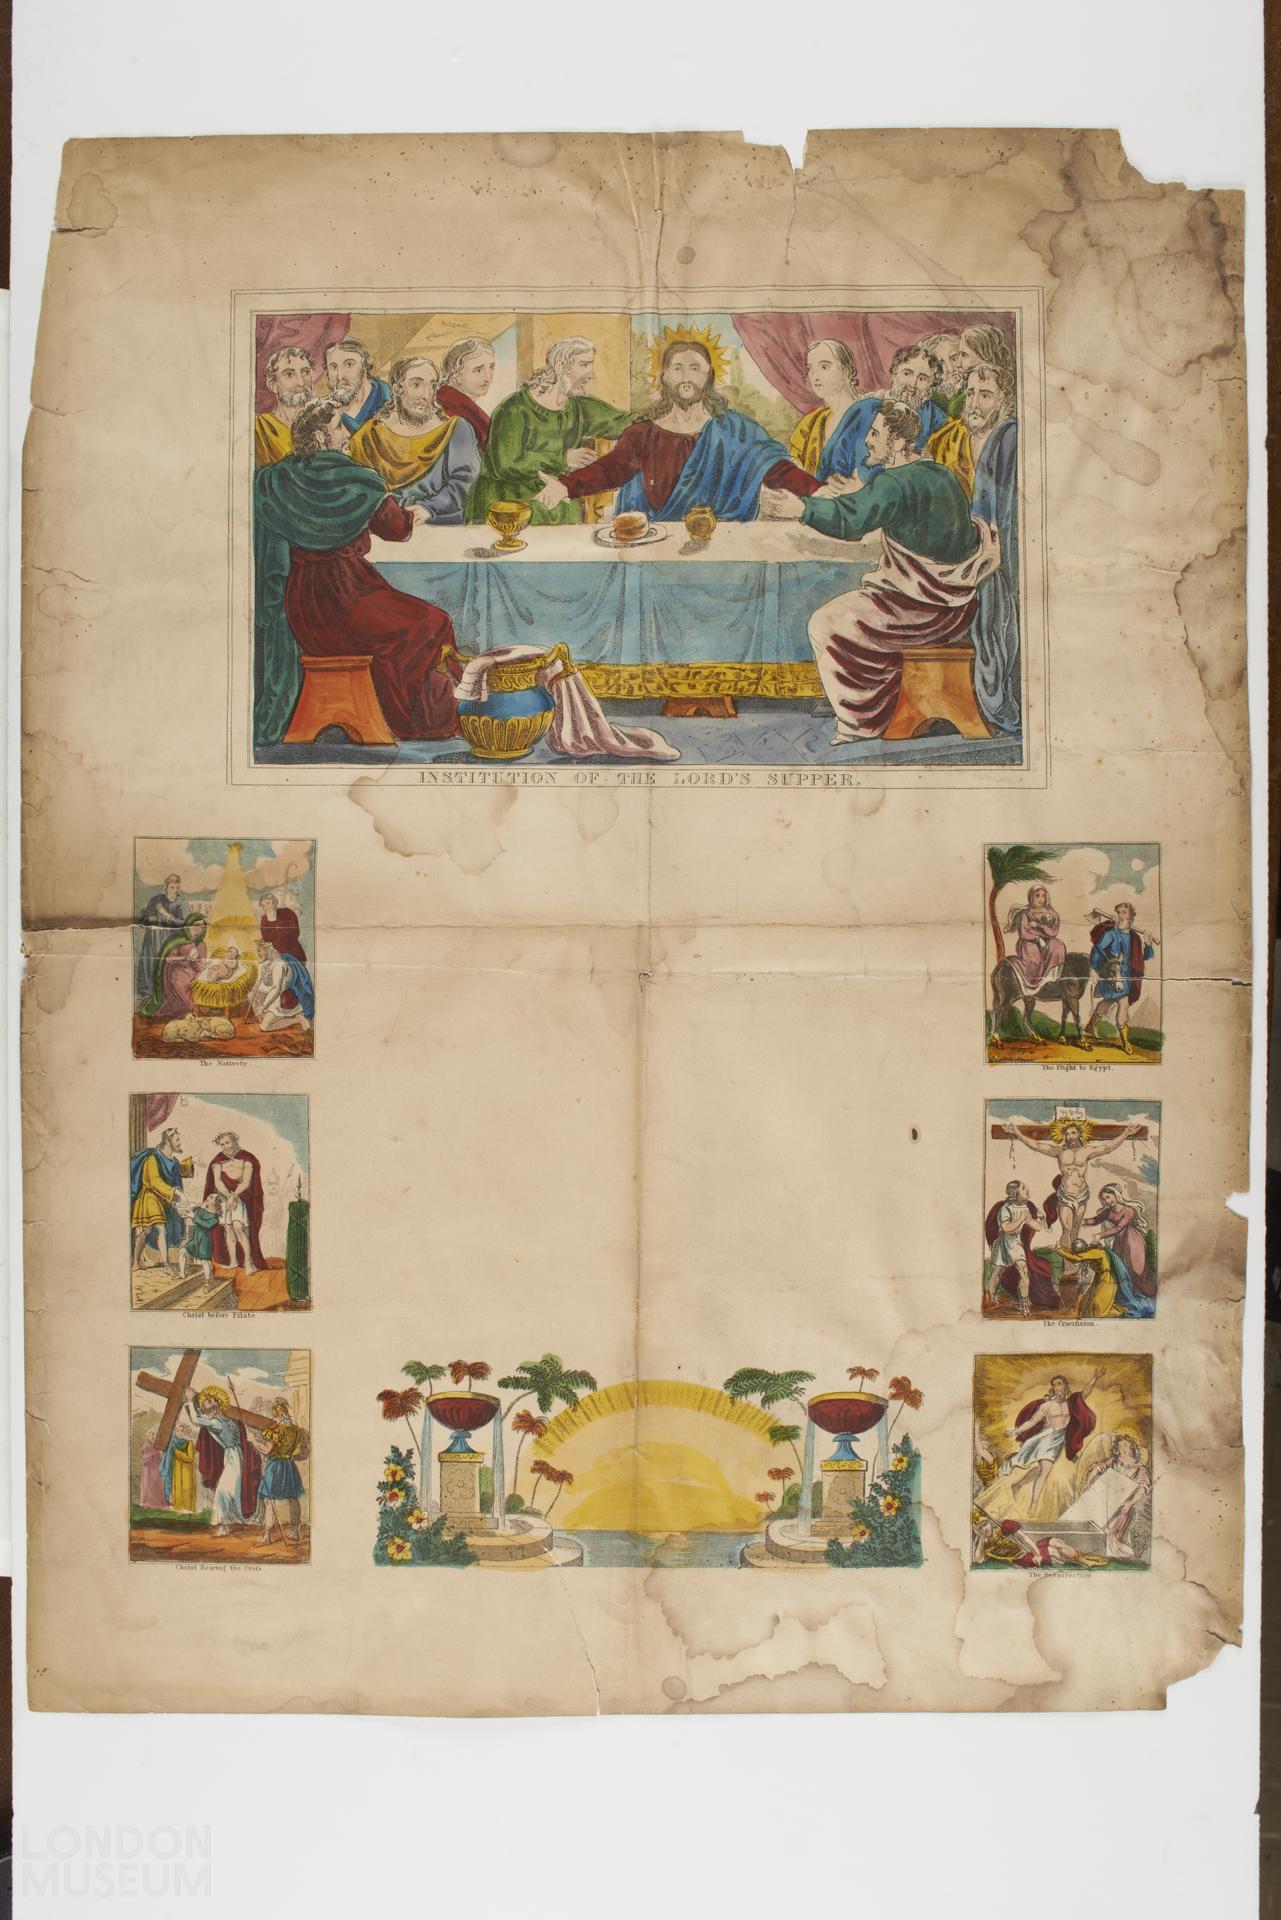 INSTITUTION OF THE LORD'S SUPPER.
The Nativety
The Flight to Egypt.
Christ before Pilate
The Crucifixion.
Christ Bearing the Croſs
The Resurrection
LONDON
MUSEUM